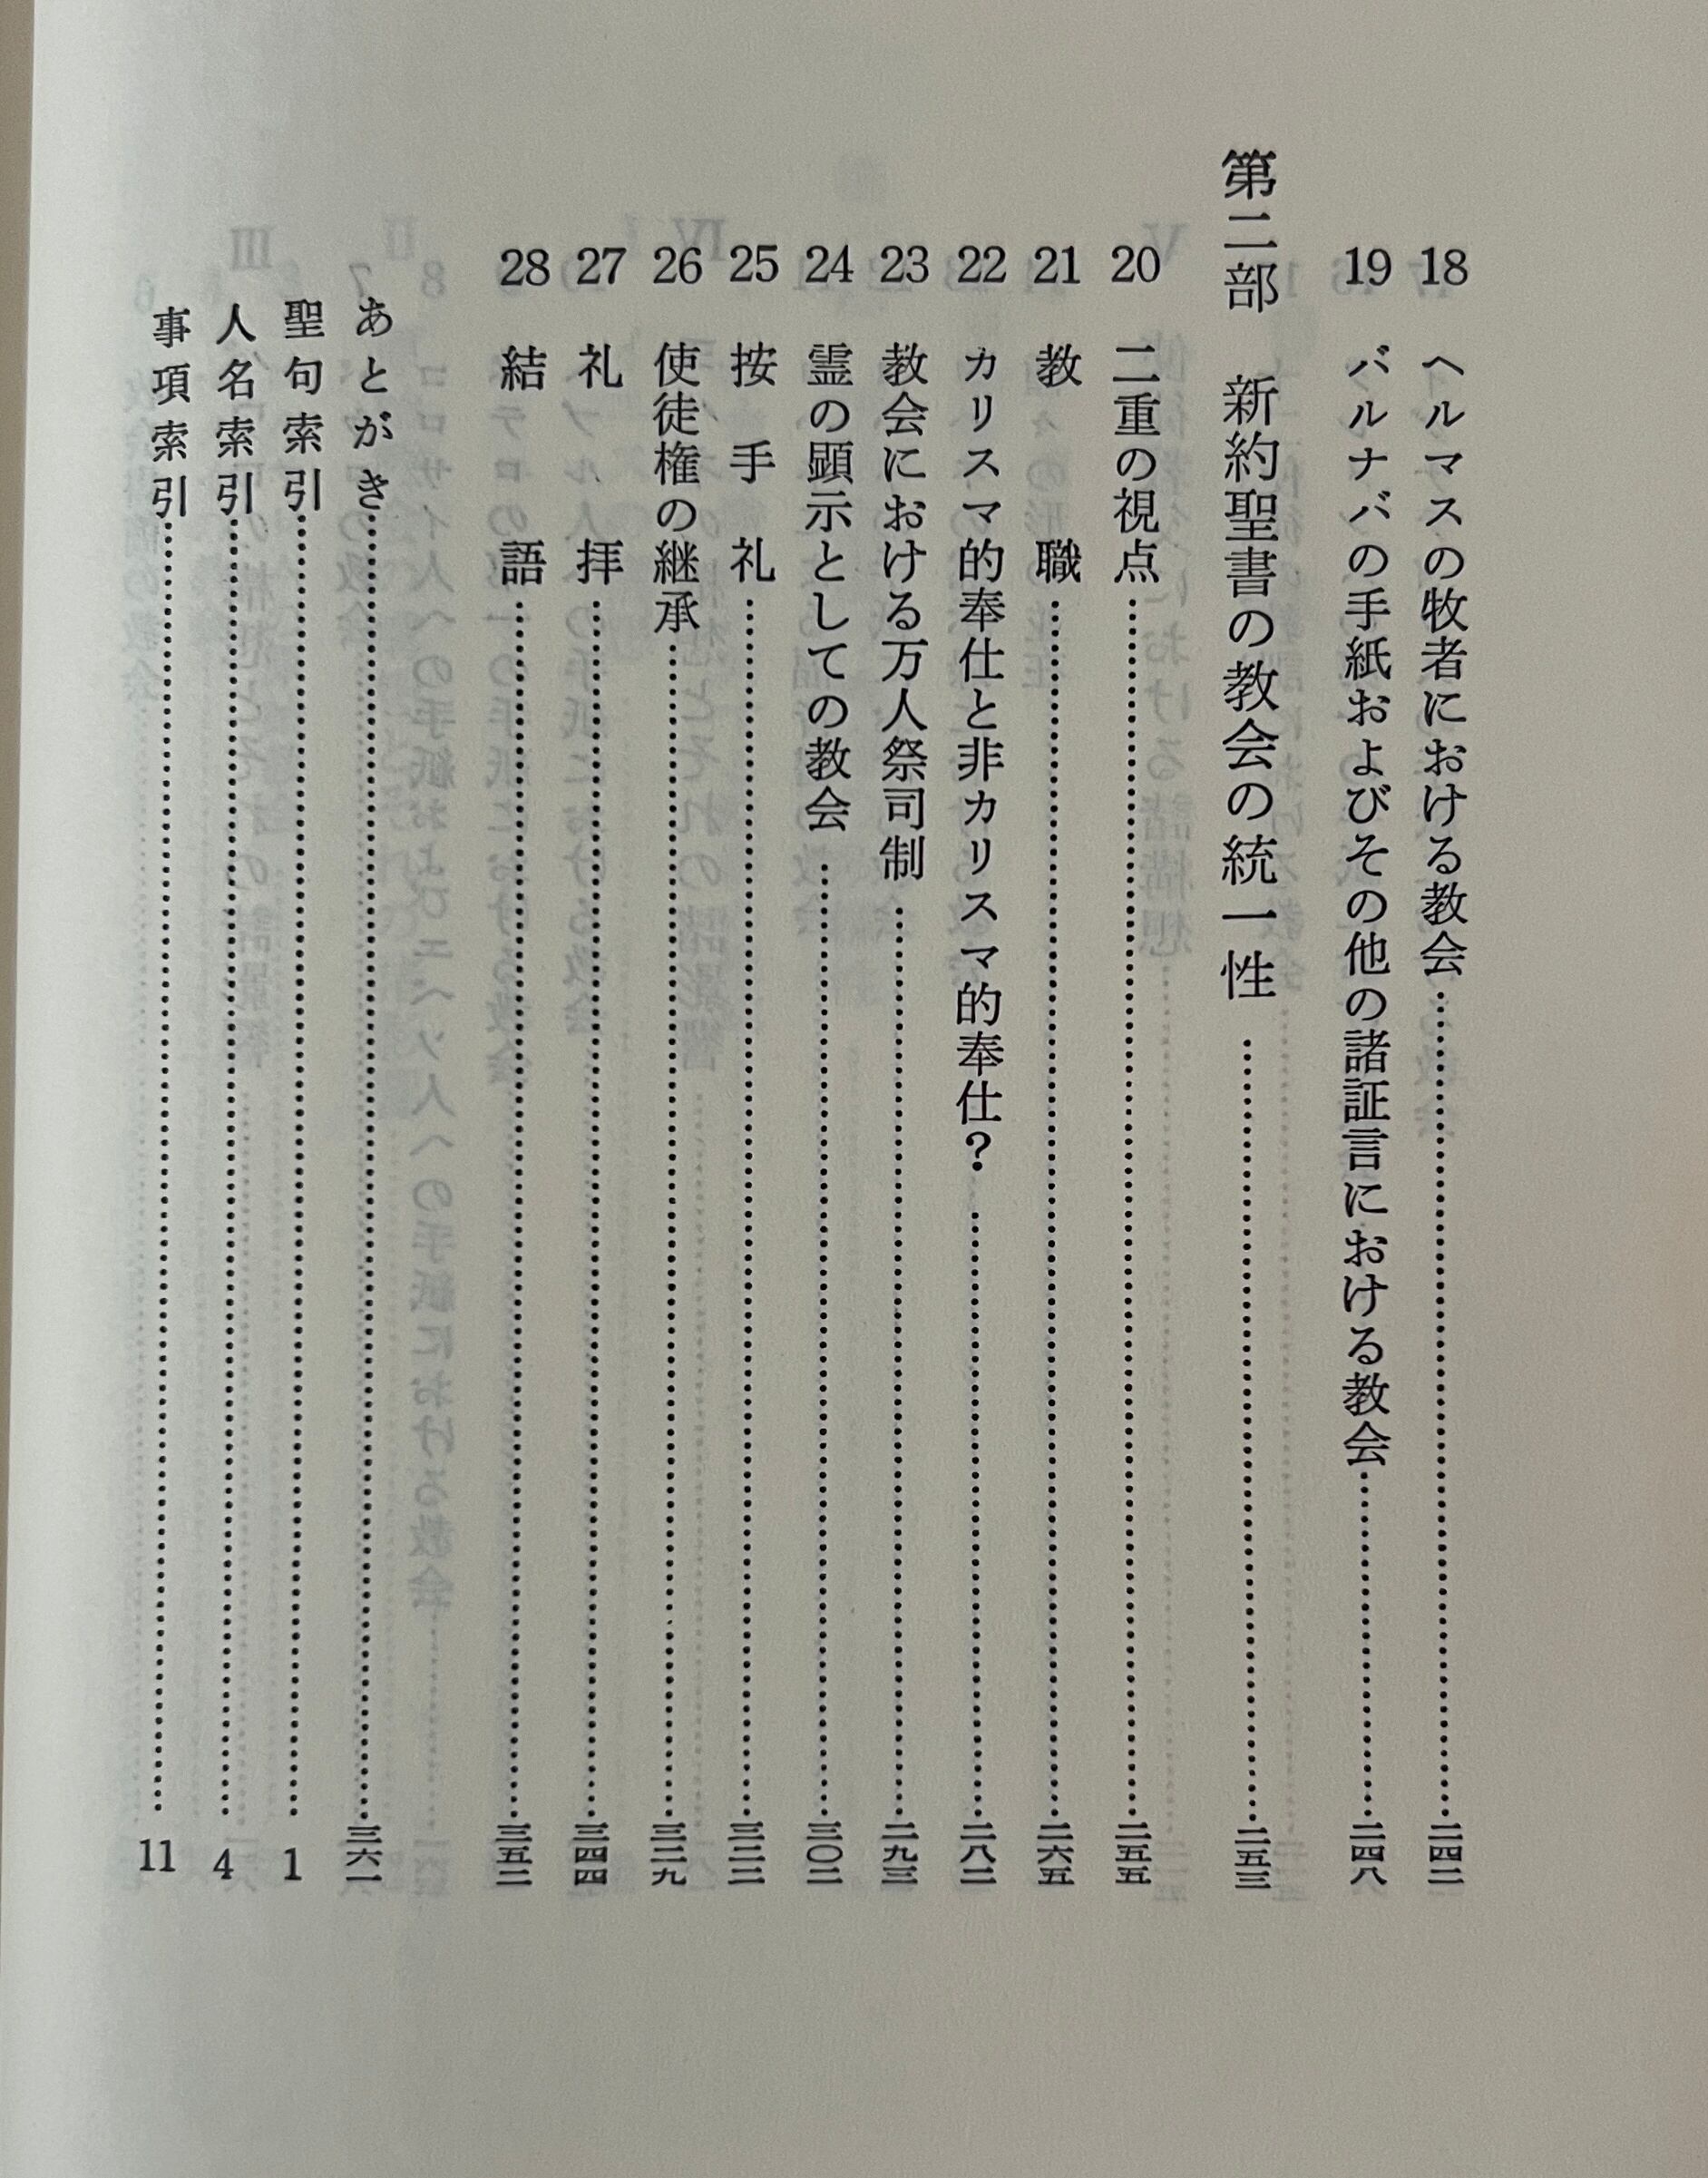 18 ヘルマスの牧者における教会……二四二
19 バルナバの手紙およびその他の諸証言における教会……二四八
第二部 新約聖書の教会の統一性……二五三
20 二重の視点……二五五
21 教職……二六五
22 カリスマ的奉仕と非カリスマ的奉仕?……二八二
23 教会における万人祭司制……二九三
24 霊の顕示としての教会……三〇二
25 按手礼……三二二
26 使徒権の継承……三二九
27 礼拝……三四四
28 結語……三五二
あとがき……三六一
聖句索引……1
人名索引……4
事項索引……11